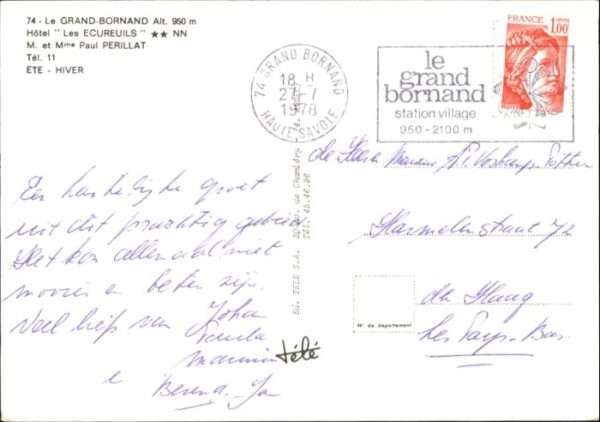 74 - Le GRAND-BORNAND Alt. 950 m
Hôtel " Les ECUREUILS " ★★ NN
M. et Mme Paul PERILLAT
Tél. 11
ETE - HIVER
74 GRAND BORNAND
18 H
27-7
1978
HAUTE-SAVOIE
le
grand
bornand
station village
950-2100 m
FRANCE
1,00
Een hartelijke groet
uit dit prachtig gebied
Het kon allemaal niet
mooier en beter zijn.
Veel liefs van Johan
e Berend-Jan
de Heer en Mevrouw
Harmelenstraat 72
den Haag
Les Pays-Bas
Ed. TELE S.A.
télé
N° de département